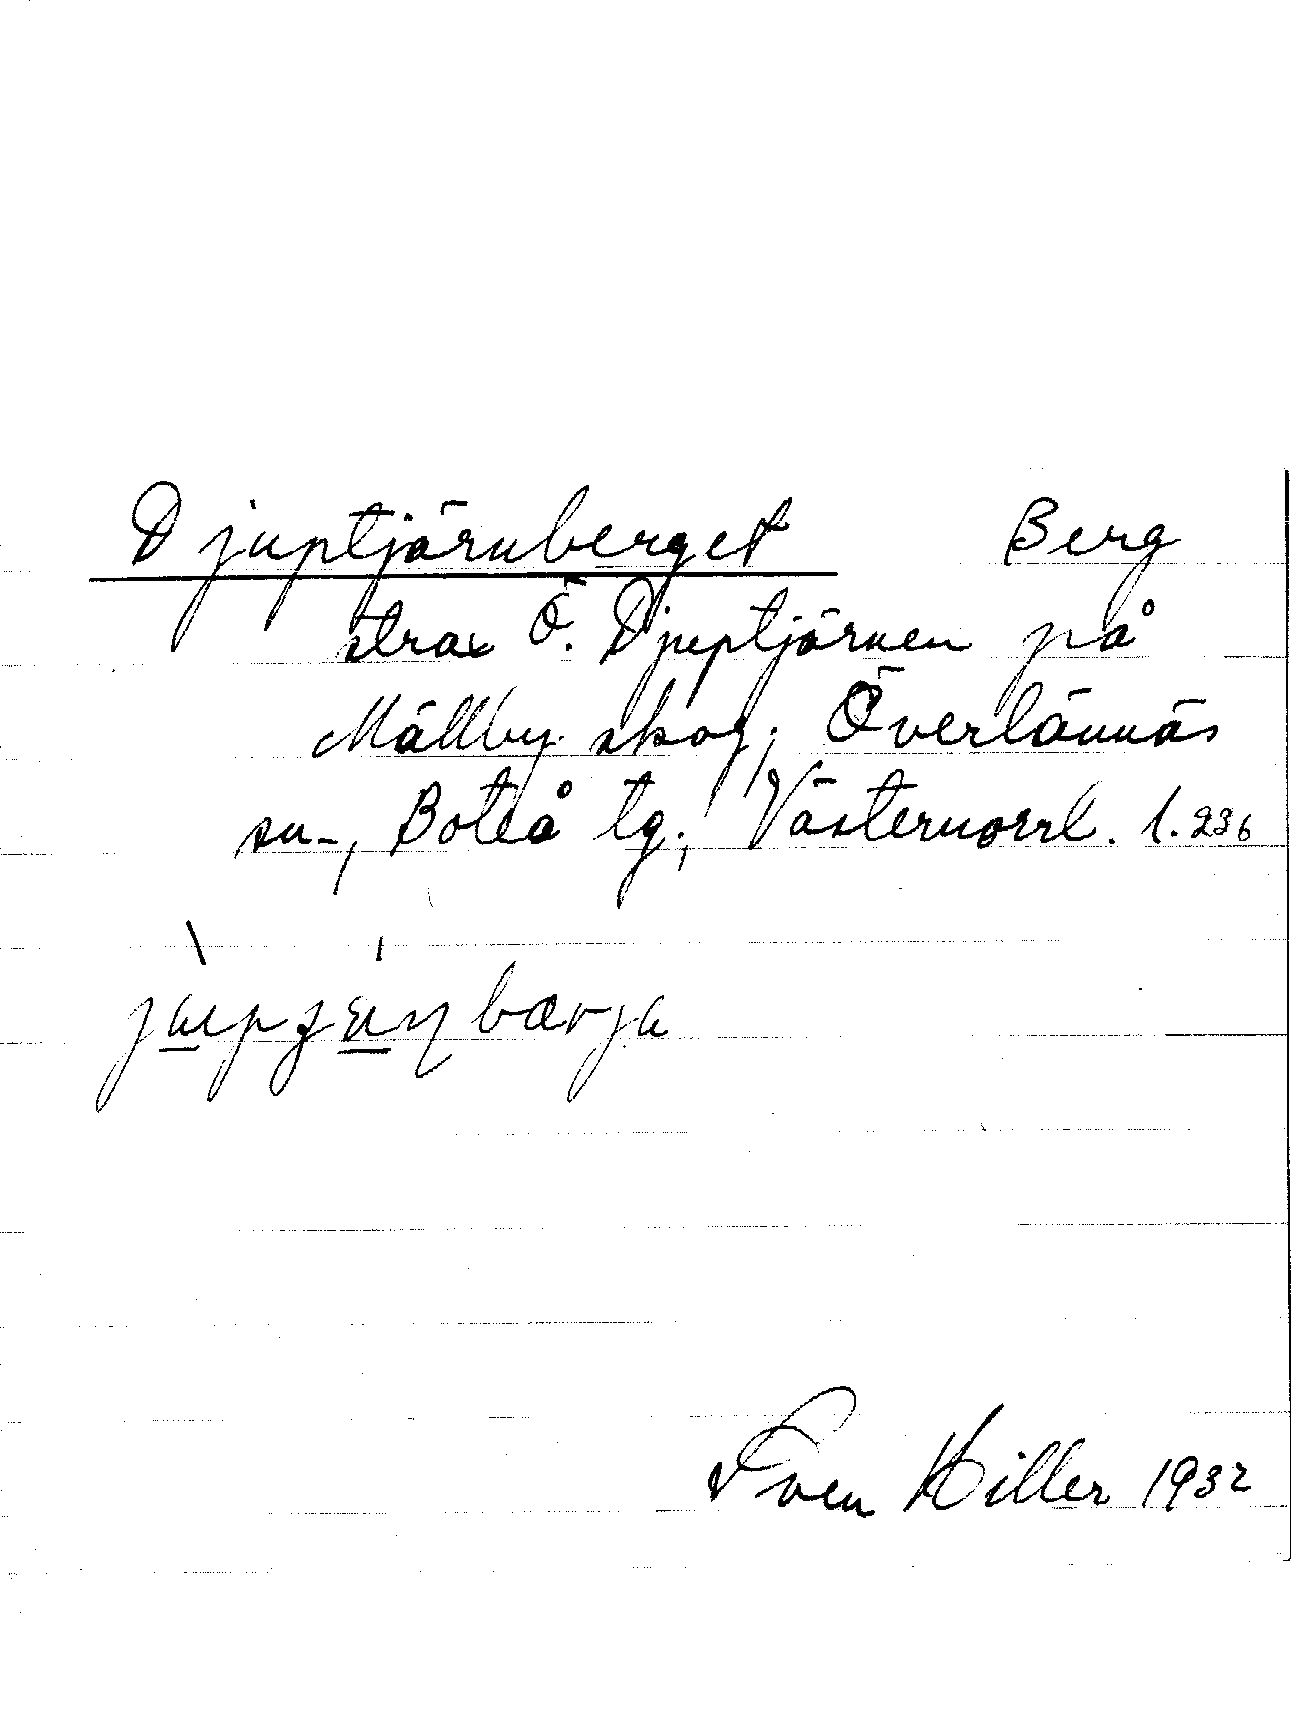 Djuptjärnberget Berg
strax Ö. Djuptjärnen på
Mällby skog; Överlännäs
sn-, Boteå tg; Västernorrl. l. 236
Sven Hiller 1932